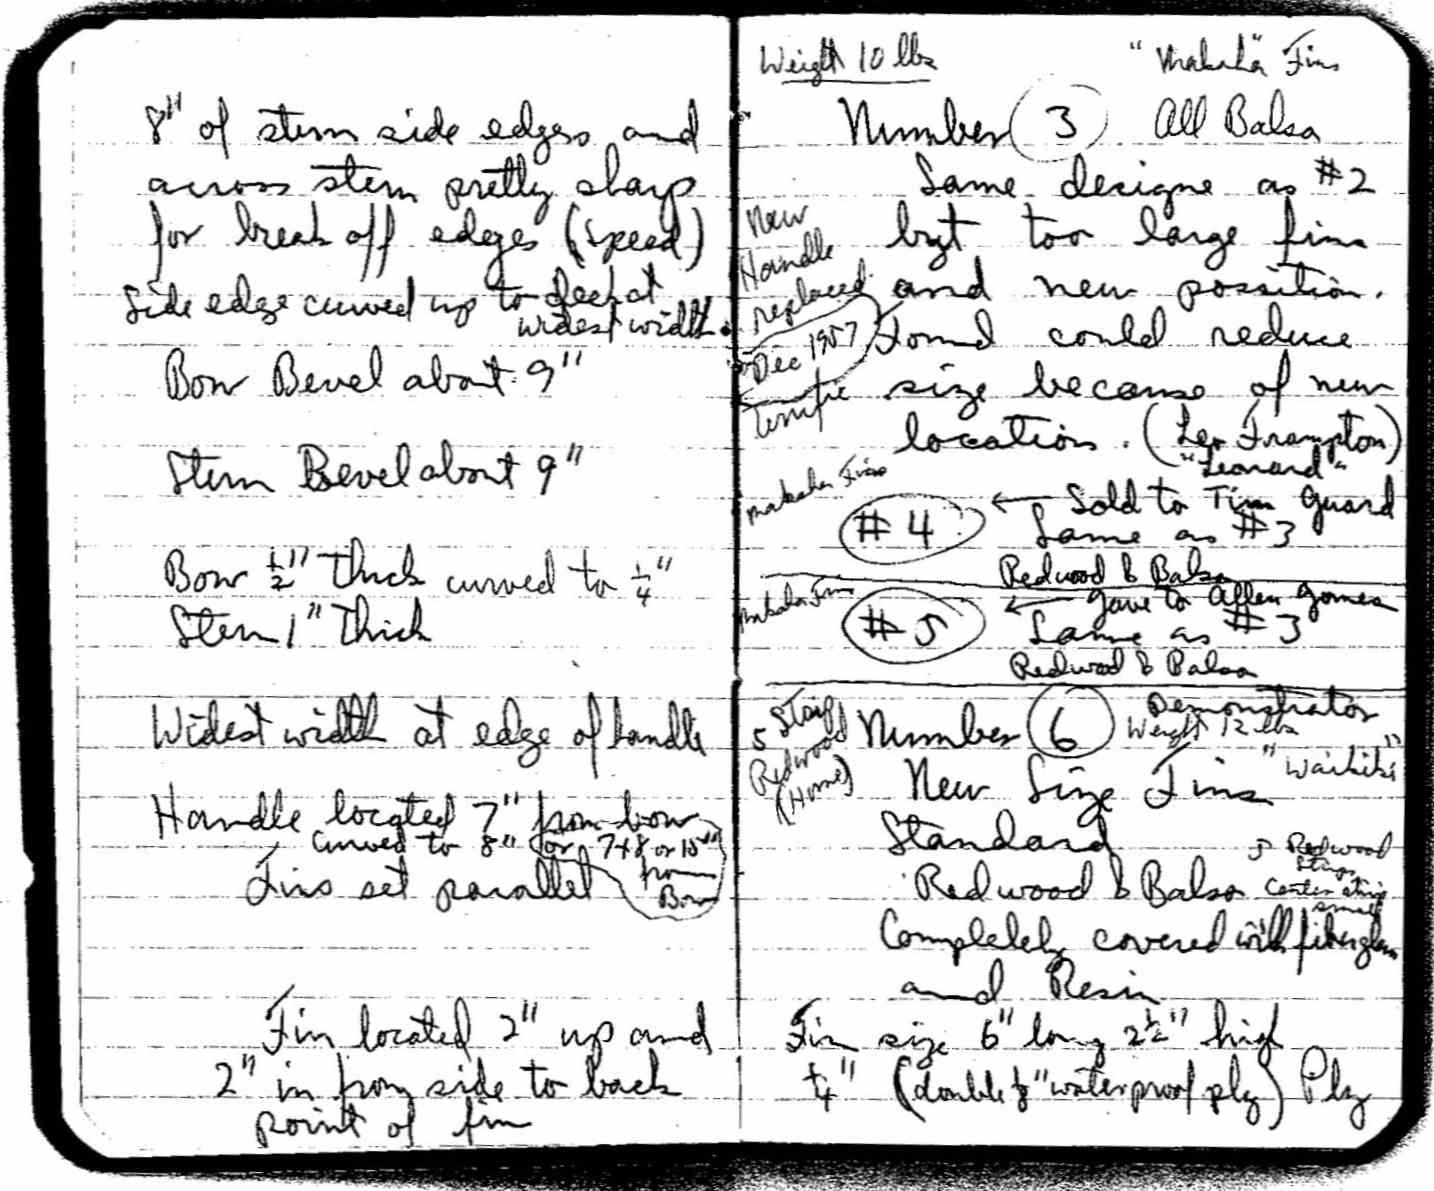 8" of stern side edges and
across stern pretty sharp
for break off edges (speed)
Side edge curved up to deck at
widest width.
Bow Bevel about 9"
Stern Bevel about 9"
Bow 1/2" thick curved to 1/4"
Stern 1" thick
Widest width at edge of handle
Handle located 7" from bow
curved to 8" (or 7+8 or 15"
from
Bow
Fins set parallel
Fin located 2" up and
2" in from side to back
point of fin
Weight 10 lbs
"Makaha" Fins
Number 3 All Balsa
Same designe as #2
but too large fins
and new possition.
Found could reduce
size because of new
location. (Leo Frampton)
"Leonard"
New
Handle
replaced
Dec 1957
terrific
Makaha Fins
#4 ← Sold to Tim Guard
Same as #3
Redwood & Balsa
Makaha Fins
#5 ← gave to Allen Gomes
Same as #3
Redwood & Balsa
5 Strip
Redwood
(Home)
Number 6 Demonstrator
Weight 12 lbs
"Waikiki"
New Size Fins
Standard
Redwood & Balsa
5 Redwood
Strips
Center strip
small
Completely covered with fiberglass
and Resin
Fin size 6" long 2 1/2" high
1/4" (double 1/8" waterproof ply) Ply